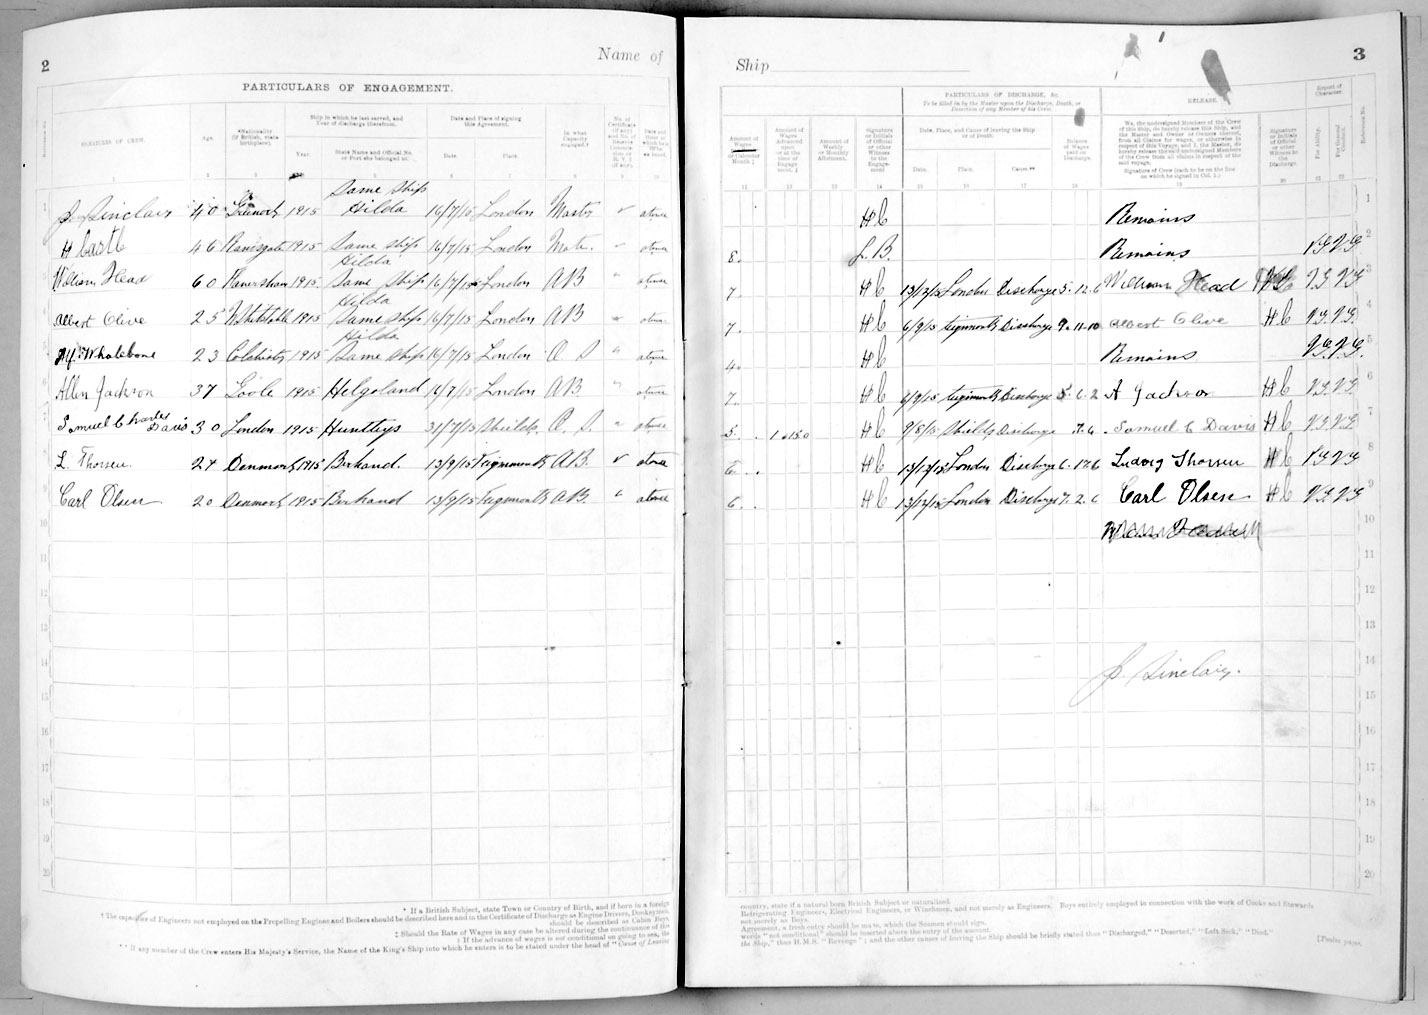 2
Name of
PARTICULARS OF ENGAGEMENT.
SIGNATURE OF CREW.
Age.
*Nationality (If British, state birthplace).
Ship in which he last served, and Year of discharge therefrom.
Year.
State Name and Official No. or Port she belonged to.
Date and Place of signing this Agreement.
Date.
Place.
In what Capacity engaged.†
1 J. Sinclair 40 Greenock 1915 Same ship Hilda 16/7/15 London Master above
2 H Castle 46 Ramsgate 1915 Same ship Hilda 16/7/15 London Mate. above
3 William Head 60 Faversham 1915 Same ship Hilda 16/7/15 London AB above
4 Albert Olive 25 Whitstable 1915 Same ship Hilda 16/7/15 London AB above
5 Whalebone 23 Colchester 1915 Same ship 16/7/15 London O S above
6 Allen Jackson 37 Goole 1915 Helgoland 16/7/15 London AB above
7 Samuel Charles Davis 30 London 1915 Huntleys 31/7/15 Shields O. S above
8 L. Thorsen 24 Denmark 1915 13/9/15 Teignmouth AB. above
9 Carl Olsen 20 Denmark 1915 13/9/15 Teignmouth AB. above
10
11
12
13
14
15
16
17
18
19
20
* If a British Subject, state Town or Country of Birth, and if born in a foreign
† The capacities of Engineers not employed on the Propelling Engines and Boilers should be described here and in the Certificate of Discharge as Engine Drivers, Donkeymen,
should be described as Cabin Boys.
‡ Should the Rate of Wages in any case be altered during the continuance of the
§ If the advance of wages is not conditional on going to sea, the
** If any member of the Crew enters His Majesty's Service, the Name of the King's Ship into which he enters is to be stated under the head of "Cause of Leaving
Ship
3
PARTICULARS OF DISCHARGE, &c.
To be filled in by the Master upon the Discharge, Death, or Desertion of any Member of his Crew.
RELEASE.
Report of Character.
Amount of Wages
Amount of Wages Advanced upon or at the time of Engagement.
Amount of Weekly or Monthly Allotment.
Signature or Initials of Official or other Witness to the Engagement
Date, Place, and Cause of leaving the Ship or of Death.
Date.
Place.
Cause.**
Balance of Wages paid on Discharge.
We, the undersigned Members of the Crew of this Ship, do hereby release this Ship, and the Master and Owner or Owners thereof, from all Claims for wages, or otherwise in respect of this Voyage, and I, the Master, do hereby release the said undersigned Members of the Crew from all claims in respect of the said voyage.
Signature of Crew (each to be on the line on which he signed in Col. 1.)
Signature or Initials of Official or other Witness to the Discharge.
For Ability.
For General Conduct.
H C Remains 1
8. J. B. Remains V.G V.G 2
7. H C 13/12/15 London Discharge 5. 12. 6 William Head V.G V.G 3
7. H C 6/9/15 Teignmouth Discharge 9. 11. 10 Albert Olive H C V.G. V.G. 4
4. H C Remains V.G. V.G. 5
7. H C 6/9/15 Teignmouth Discharge 5. 6. 2 A Jackson H C V.G V.G 6
5. H C 9/8/15 Shields Discharge Samuel C Davis H C V.G V.G 7
6. H C 13/12/15 London Discharge 6. 17. 6 Ludvig Thorsen H C V.G V.G 8
6. H C 13/12/15 London Discharge 7. 2. 6 Carl Olsen H C V.G. V.G 9
10
11
12
13
J. Sinclair. 14
15
16
17
18
19
20
country, state if a natural born British Subject or naturalized.
Refrigerating Engineers, Electrical Engineers, or Winchmen, and not merely as Engineers. Boys entirely employed in connection with the work of Cooks and Stewards
not merely as Boys.
Agreement, a fresh entry should be made, which the Seamen should sign.
words "not conditional" should be inserted above the entry of the amount.
the Ship," thus H.M.S. "Revenge"; and the other causes of leaving the Ship should be briefly stated thus "Discharged," "Deserted," "Left Sick," "Died."
[Twelve pages.